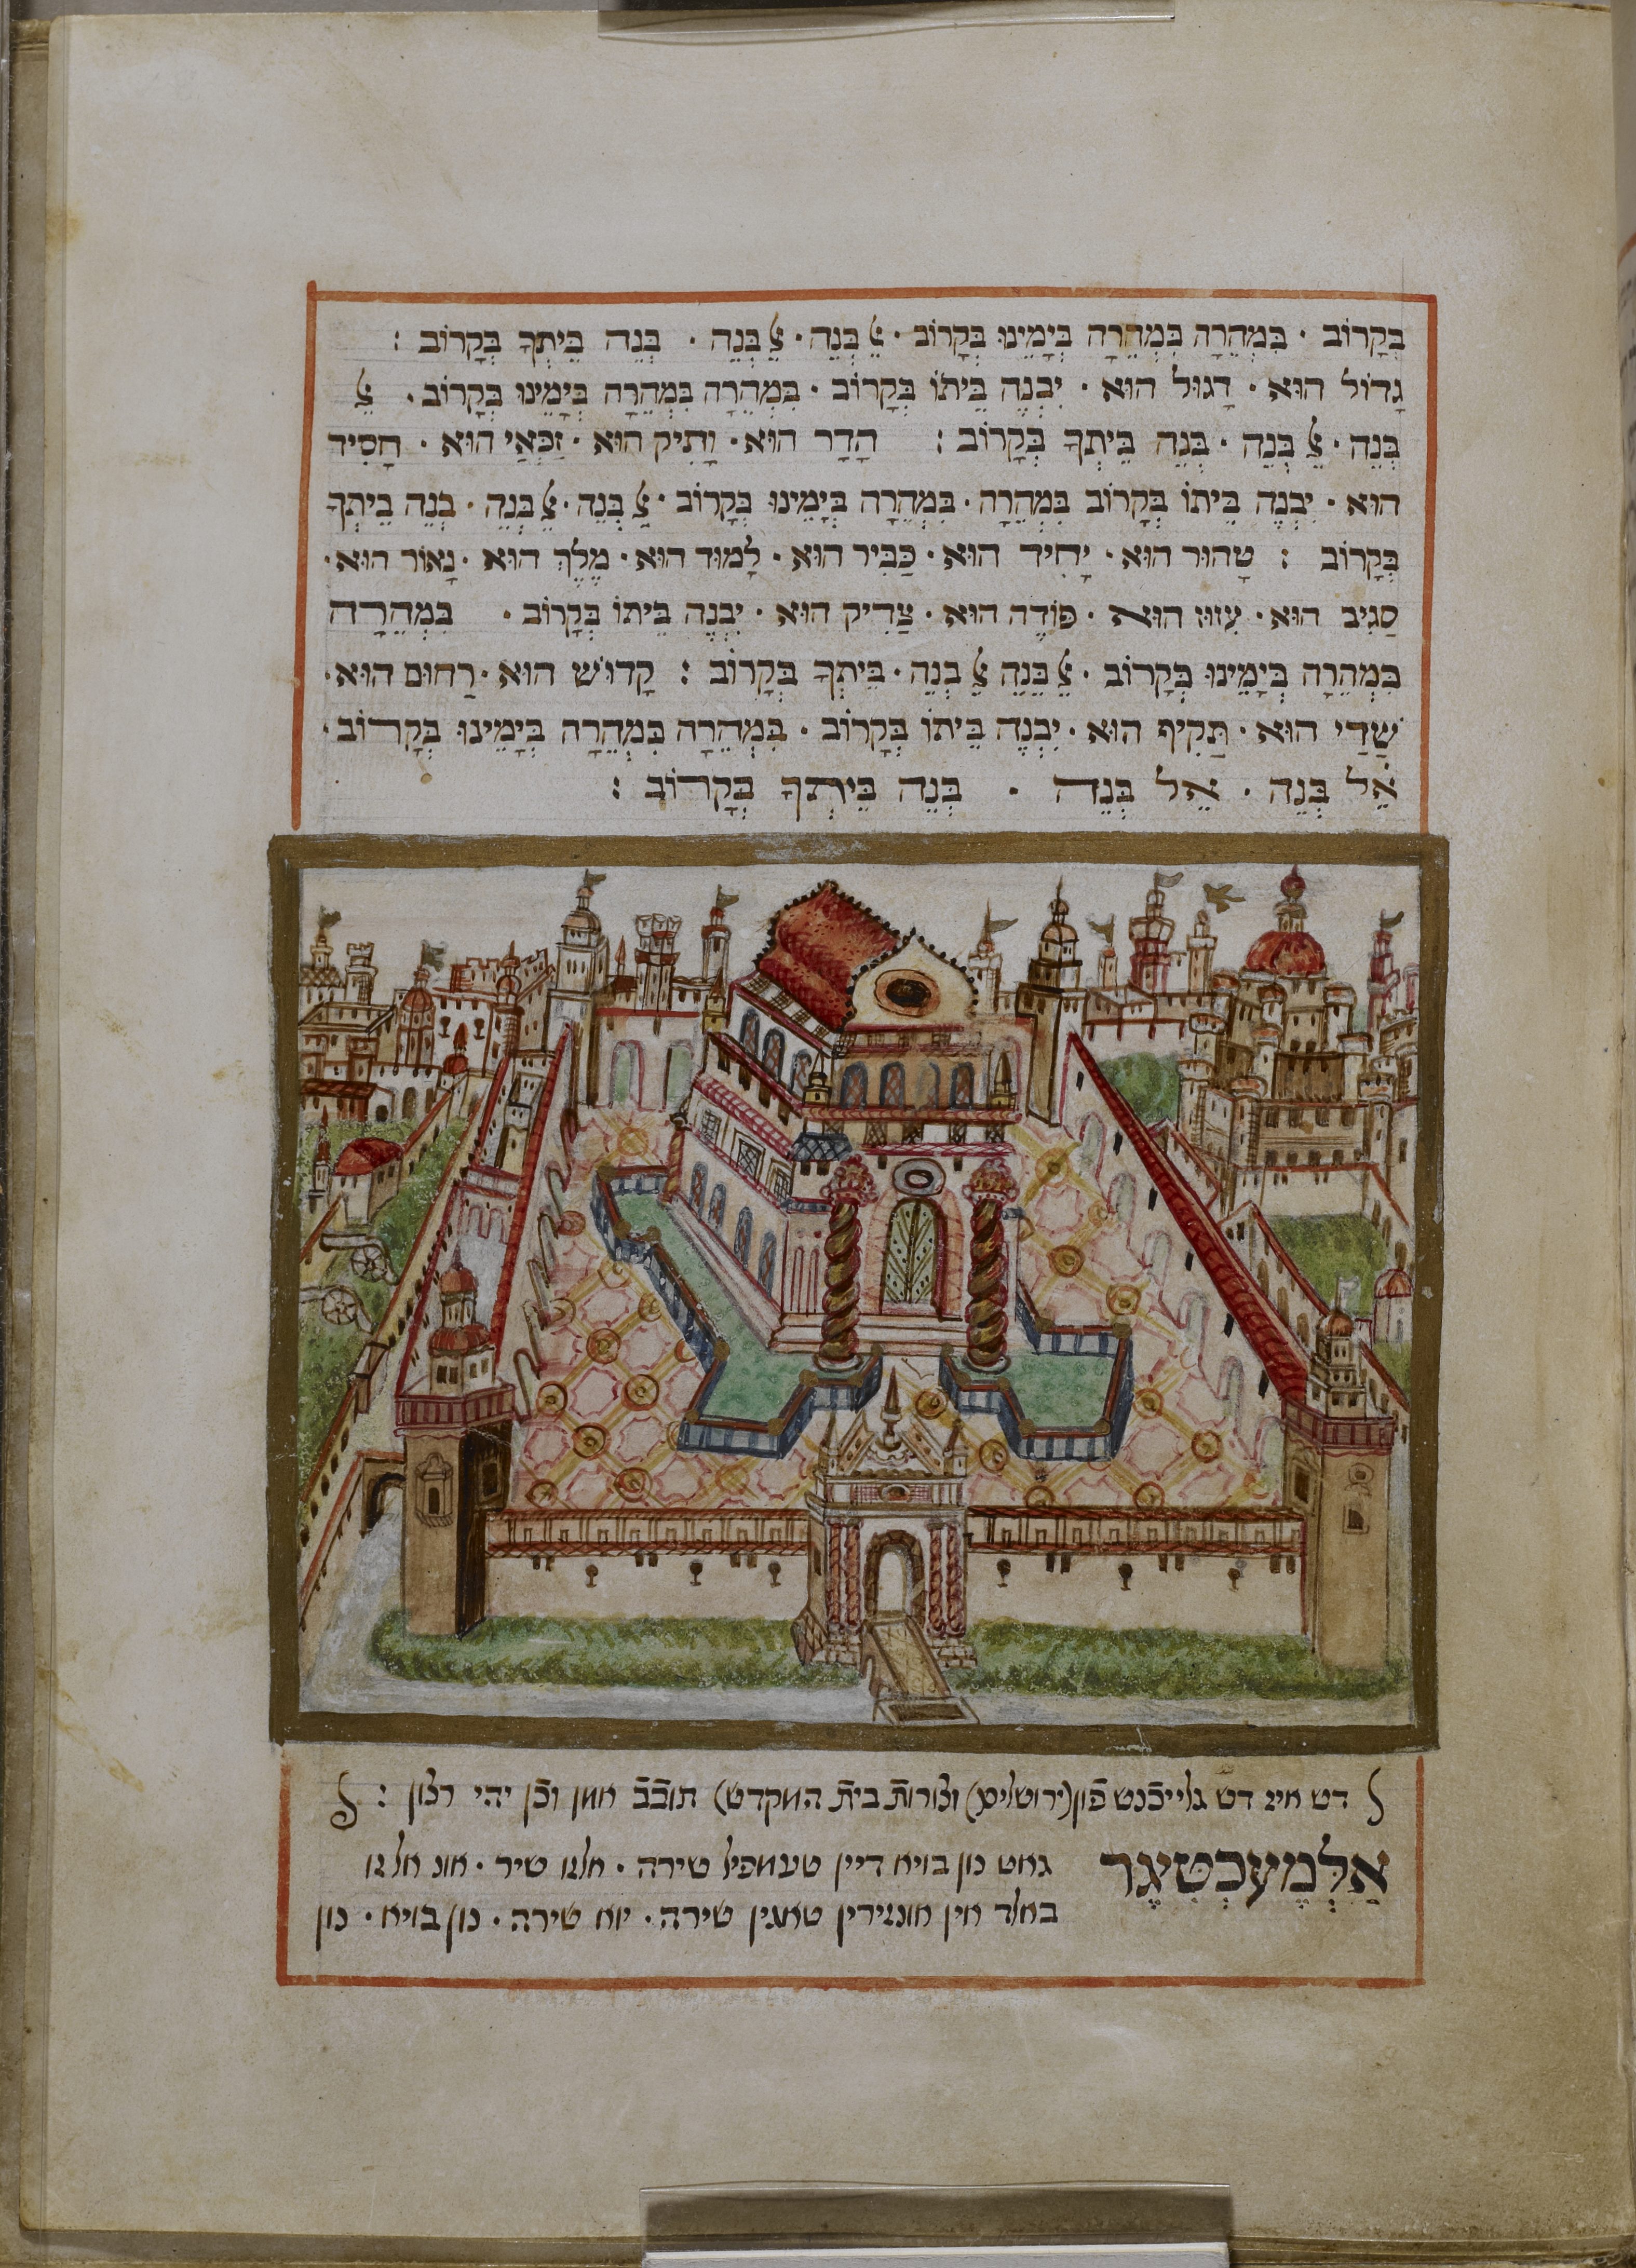 בְּקָרוֹב · בִּמְהֵרָה בִּמְהֵרָה בְּיָמֵינוּ בְּקָרוֹב · אֵל בְּנֵה · אֵל בְּנֵה · בְּנֵה בֵּיתְךָ בְּקָרוֹב :
גָדוֹל הוּא · דָגוּל הוּא · יִבְנֶה בֵּיתוֹ בְּקָרוֹב · בִּמְהֵרָה בִּמְהֵרָה בְּיָמֵינוּ בְּקָרוֹב · אֵל
בְּנֵה · אֵל בְּנֵה · בְּנֵה בֵּיתְךָ בְּקָרוֹב : הָדָר הוּא · וָתִיק הוּא · זַכַּאי הוּא · חָסִיד
הוּא · יִבְנֶה בֵּיתוֹ בְּקָרוֹב בִּמְהֵרָה · בִּמְהֵרָה בְּיָמֵינוּ בְּקָרוֹב · אֵל בְּנֵה · אֵל בְּנֵה · בְּנֵה בֵּיתְךָ
בְּקָרוֹב : טָהוּר הוּא · יָחִיד הוּא · כַּבִּיר הוּא · לָמוּד הוּא · מֶלֶךְ הוּא · נָאוֹר הוּא ·
סַגִיב הוּא · עִזוּז הוּא · פּוֹדֶה הוּא · צַדִיק הוּא · יִבְנֶה בֵּיתוֹ בְּקָרוֹב · בִּמְהֵרָה
בִּמְהֵרָה בְּיָמֵינוּ בְּקָרוֹב · אֵל בְּנֵה אֵל בְּנֵה · בֵּיתְךָ בְּקָרוֹב : קָדוֹשׁ הוּא · רַחוּם הוּא ·
שַׁדַי הוּא · תַּקִיף הוּא · יִבְנֶה בֵּיתוֹ בְּקָרוֹב · בִּמְהֵרָה בִּמְהֵרָה בְּיָמֵינוּ בְּקָרוֹב ·
אֵל בְּנֵה · אֵל בְּנֵה · בְּנֵה בֵּיתְךָ בְּקָרוֹב :
דש איז דש גלייכנש פון (ירושלים) וצורות בית המקדש) תובב אמן וכן יהי רצון :
אַלְמֶעכְטִיגֶר גאט נון בויא דיין טעמפיל שירה · אלזו שיר · אונ אלזו
באלד אין אונזירין טאגין שירה · יוא שירה · נון בויא · נון